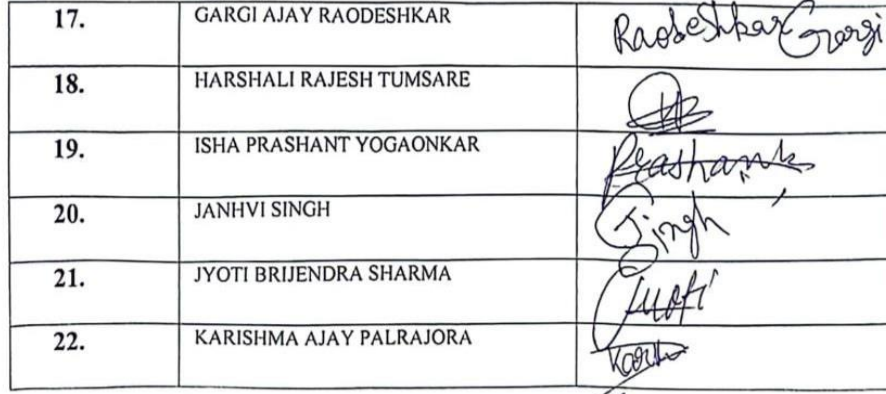 17. GARGI AJAY RAODESHKAR Raodeshkar Gargi
18. HARSHALI RAJESH TUMSARE
19. ISHA PRASHANT YOGAONKAR Prashant
20. JANHVI SINGH Singh
21. JYOTI BRIJENDRA SHARMA Jyoti
22. KARISHMA AJAY PALRAJORA